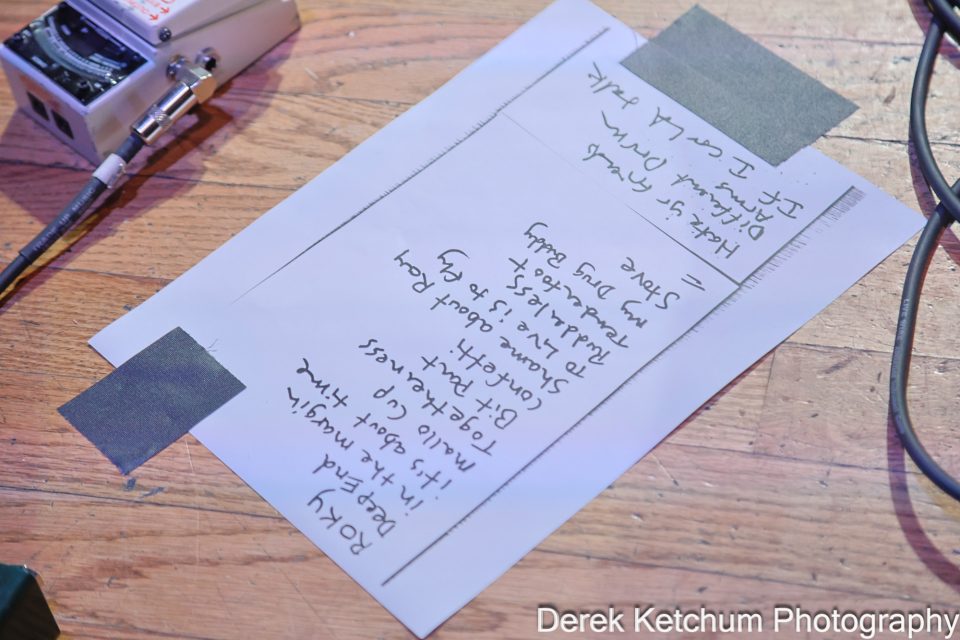 ROKY
Deep End
in the margin
it's about time
mallo Cup
Togetherness
Bit Part
Confetti.
Shame about Ray
To Live is to Fly
Rudderless
Tenderfoot
my Drug Buddy
Stove
=
Hate yr friends
Different Drum
Arms
If I could talk
Derek Ketchum Photography